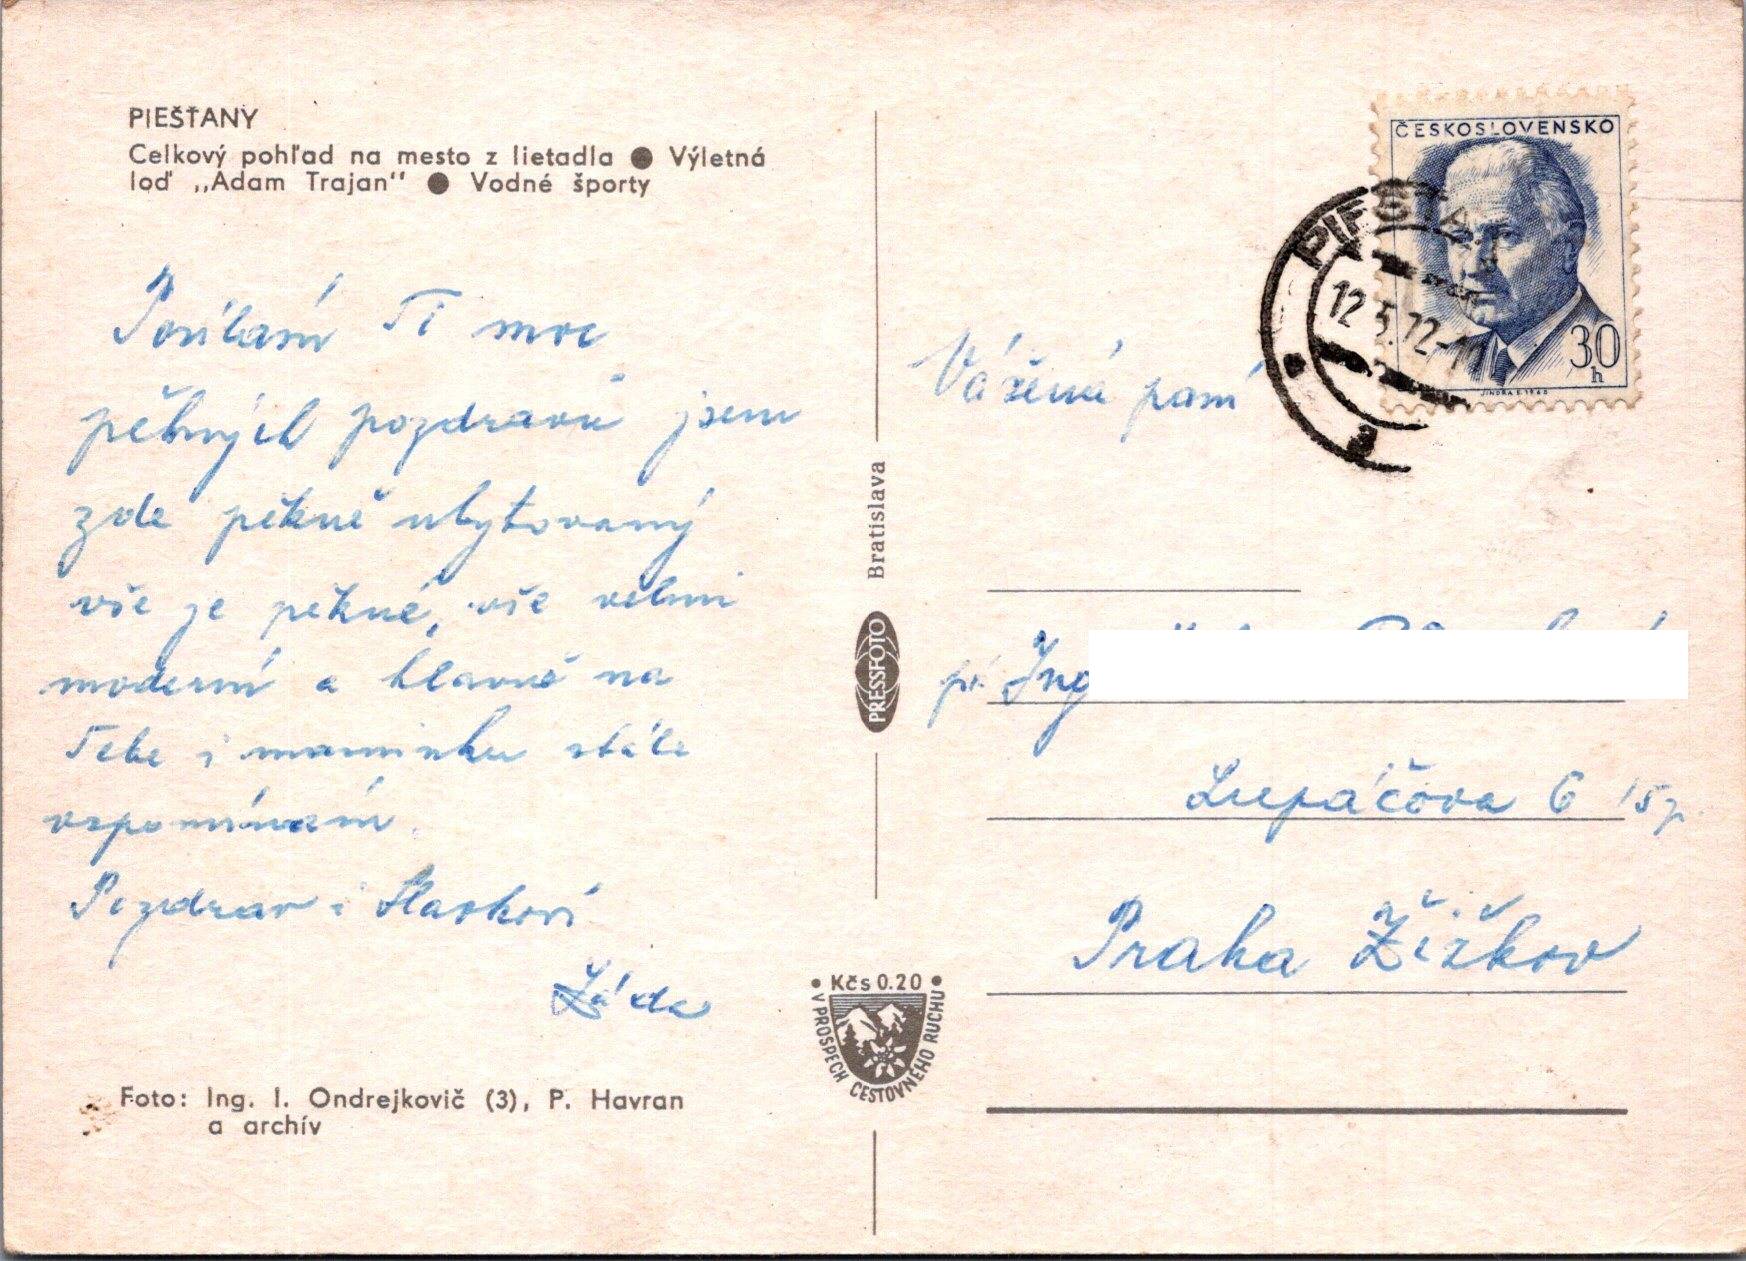 PIEŠŤANY
Celkový pohľad na mesto z lietadla ● Výletná
loď „Adam Trajan" ● Vodné športy
Posílám Ti moc
pěkných pozdravů jsem
zde pěkně ubytovaný
vše je pěkné, vše velmi
moderní a hlavně na
Tebe i maminku stále
vzpomínám.
Pozdrav i Slavkovi
Láďa
Foto: Ing. I. Ondrejkovič (3), P. Havran
a archív
Bratislava
PRESSFOTO
• Kčs 0.20 •
V PROSPECH CESTOVNÉHO RUCHU
ČESKOSLOVENSKO
30
h
JINDRA S. 1968
PIEŠŤA
12.5.72-1
a
Vážená paní
pí. Ing
Lupáčova 6 15 p.
Praha Žižkov